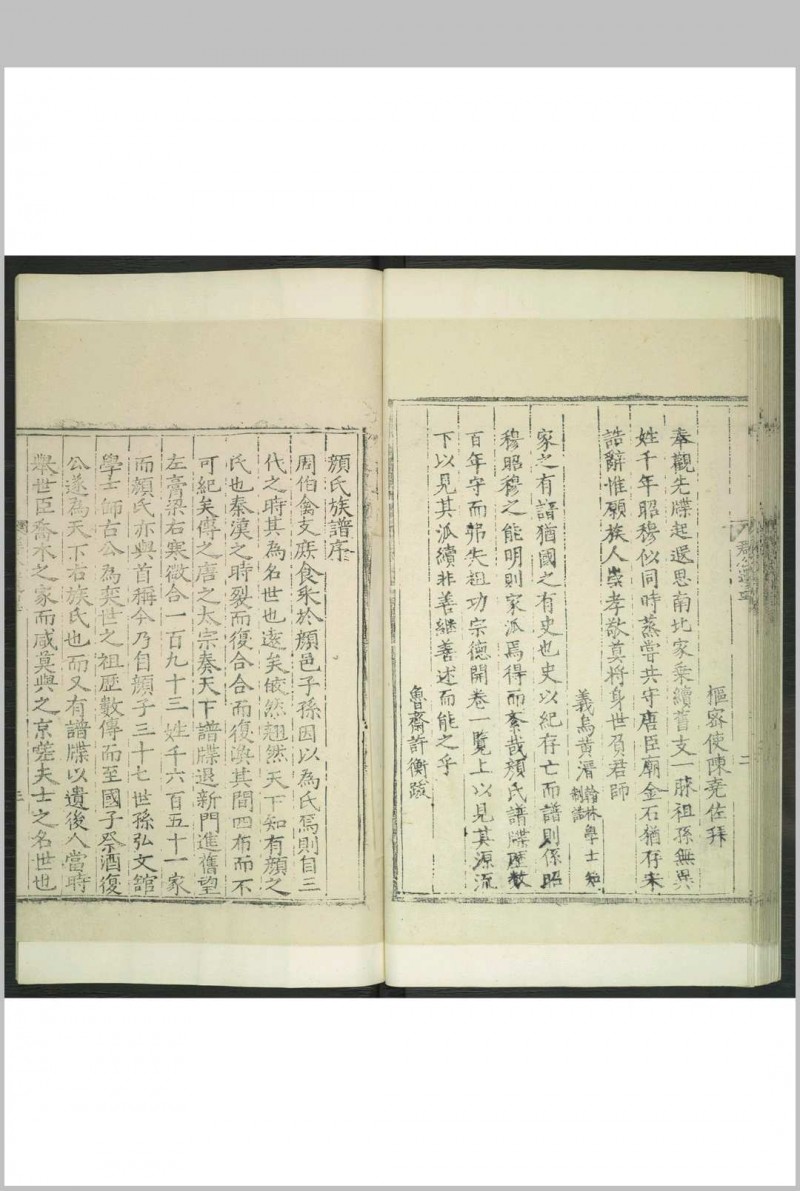 樞密使陳堯佐拜
奉觀先牒起遐思南北家乘續舊支一脉祖孫無異
姓千年昭穆似同時蒸嘗共守唐臣廟金石猶存宋
誥辭惟願族人崇孝敬莫將身世負君師
義烏黃溍翰林學士知制誥
家之有譜猶國之有史也史以紀存亡而譜則係昭
穆昭穆之能明則家派焉得而紊哉顏氏譜牒歷數
百年守而弗失祖功宗德開卷一覽上以見其源流
下以見其派續非善繼善述而能之乎
魯齋許衡跋
顏氏族譜序
周伯禽支庶食采於顏邑子孫因以為氏焉則自三
代之時其為名世也遠矣皎然翹然天下知有顏之
氏也秦漢之時裂而復合合而復渙其間四布而不
可紀矣傳之唐之太宗奏天下譜牒退新門進舊望
左膏梁右寒微合一百九十三姓千六百五十一家
而顏氏亦與首稱今乃自顏子三十七世孫弘文舘
學士師古公為奕世之祖歷數傳而至國子祭酒復
公遂為天下右族氏也而又有譜牒以遺後人當時
舉世臣喬木之家而咸莫與之京嗟夫士之名世也